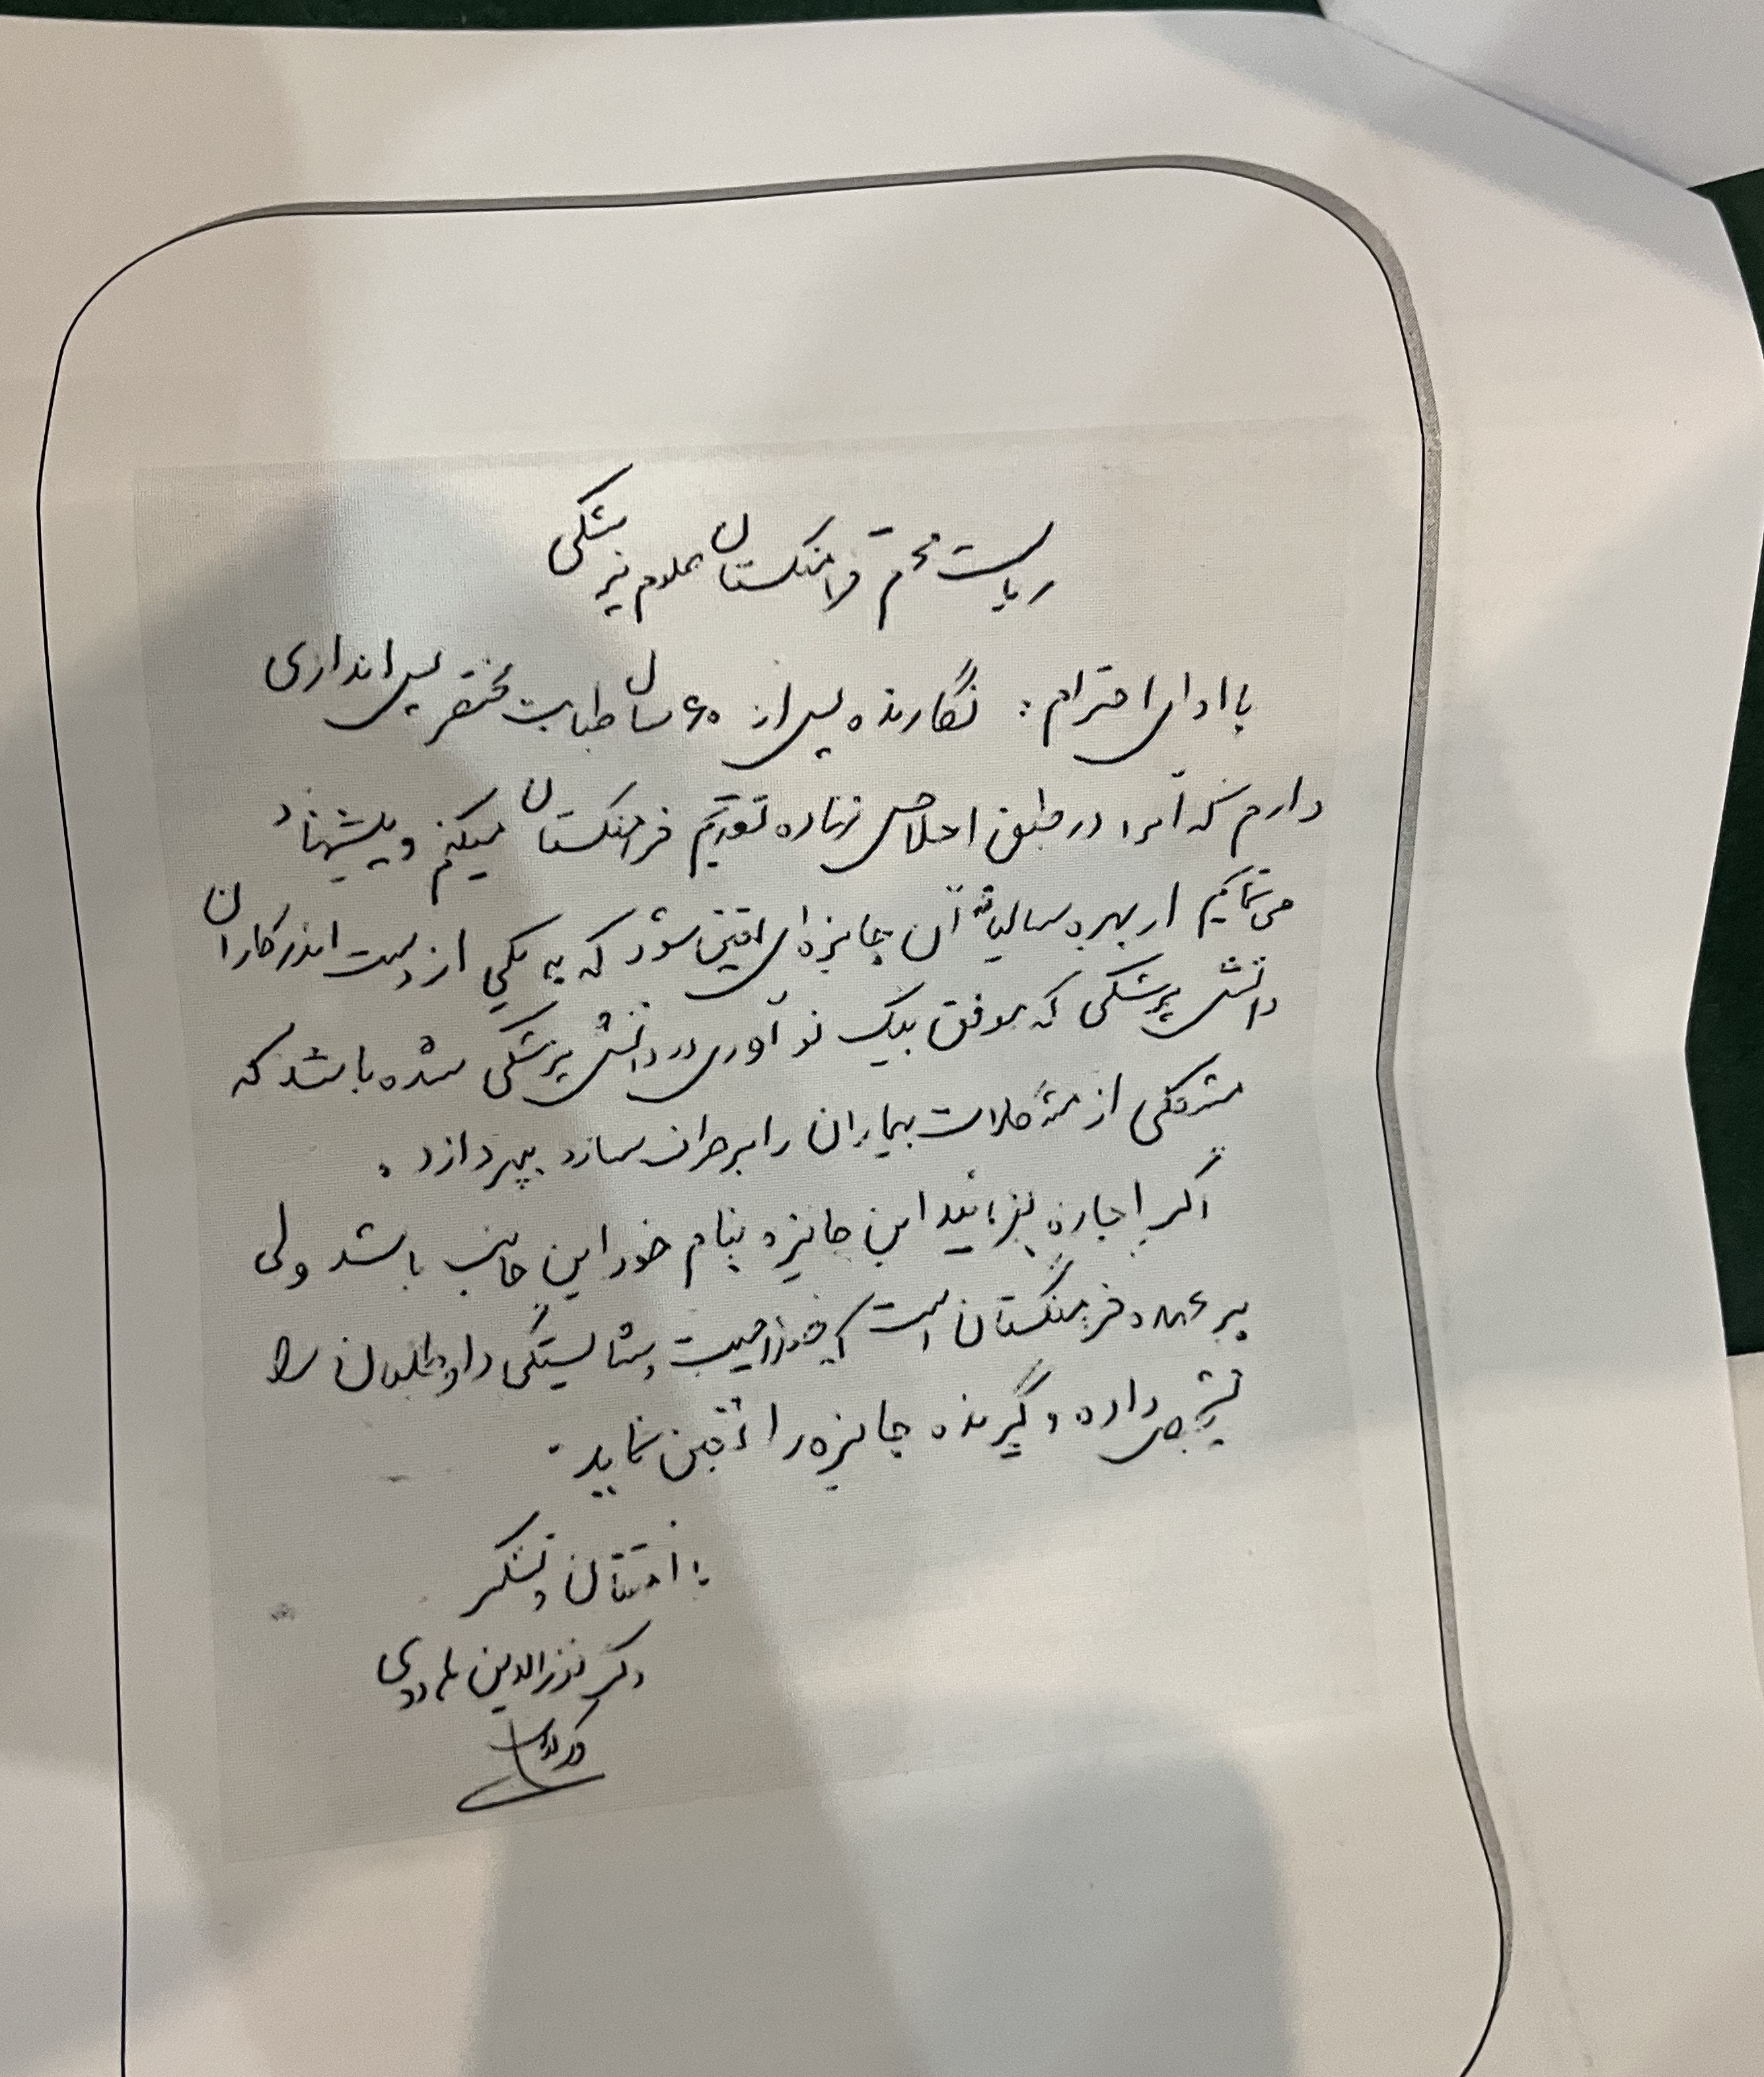 ریاست محترم فرهنگستان علوم پزشکی
با ادای احترام : نگارنده پس از ۶۰ سال طبابت مختصر پس اندازی
دارم که آنرا در طبق اخلاص نهاده تقدیم فرهنگستان میکنم و پیشنهاد
می نمایم از بهره سالیانه آن جایزه ای تعیین شود که به یکی از دست اندرکاران
دانش پزشکی که موفق بیک نوآوری در دانش پزشکی شده باشد که
مشکلی از مشکلات بیماران را برطرف سازد بپردازد .
اگر اجازه بفرمایید این جایزه بنام خود این جانب باشد ولی
بر عهده فرهنگستان است که صلاحیت و شایستگی داوطلبان را
تشخیص داده و گیرنده جایزه را تعیین نماید .
با امتنان و تشکر
دکتر نورالدین هادوی